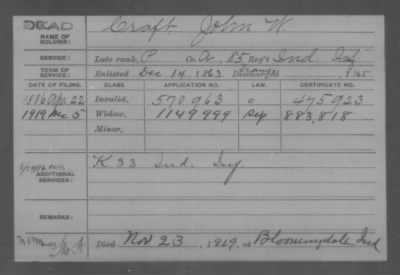 DEAD
NAME OF SOLDIER: Craft, John W.
SERVICE: Late rank, P Co. A, 85 Reg't Ind. Inf
TERM OF SERVICE: Enlisted Dec 14, 1863 Discharged , 1865
DATE OF FILING. CLASS APPLICATION NO. LAW. CERTIFICATE NO.
1886 Apr. 22 Invalid, 570963 475923
1919 Dec 5 Widow, 1149999 883,818
Minor,
ADDITIONAL SERVICES: K 33 Ind. Inf.
REMARKS:
Died Nov 23, 1919, at Bloomingdale Ind